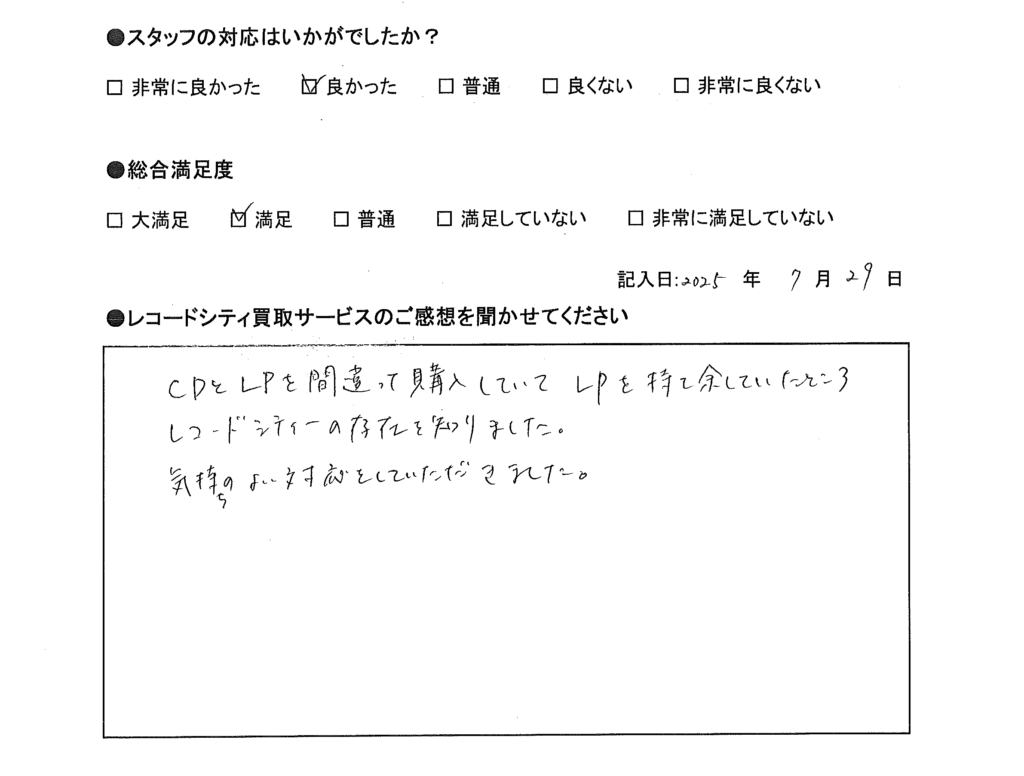 ●スタッフの対応はいかがでしたか？
□ 非常に良かった ☑ 良かった □ 普通 □ 良くない □ 非常に良くない
●総合満足度
□ 大満足 ☑ 満足 □ 普通 □ 満足していない □ 非常に満足していない
記入日:2025 年 7 月 29 日
●レコードシティ買取サービスのご感想を聞かせてください
CDとLPを間違って購入していて LPを持て余していたところ
レコードシティーの存在を知りました。
気持ちのよい対応をしていただきました。